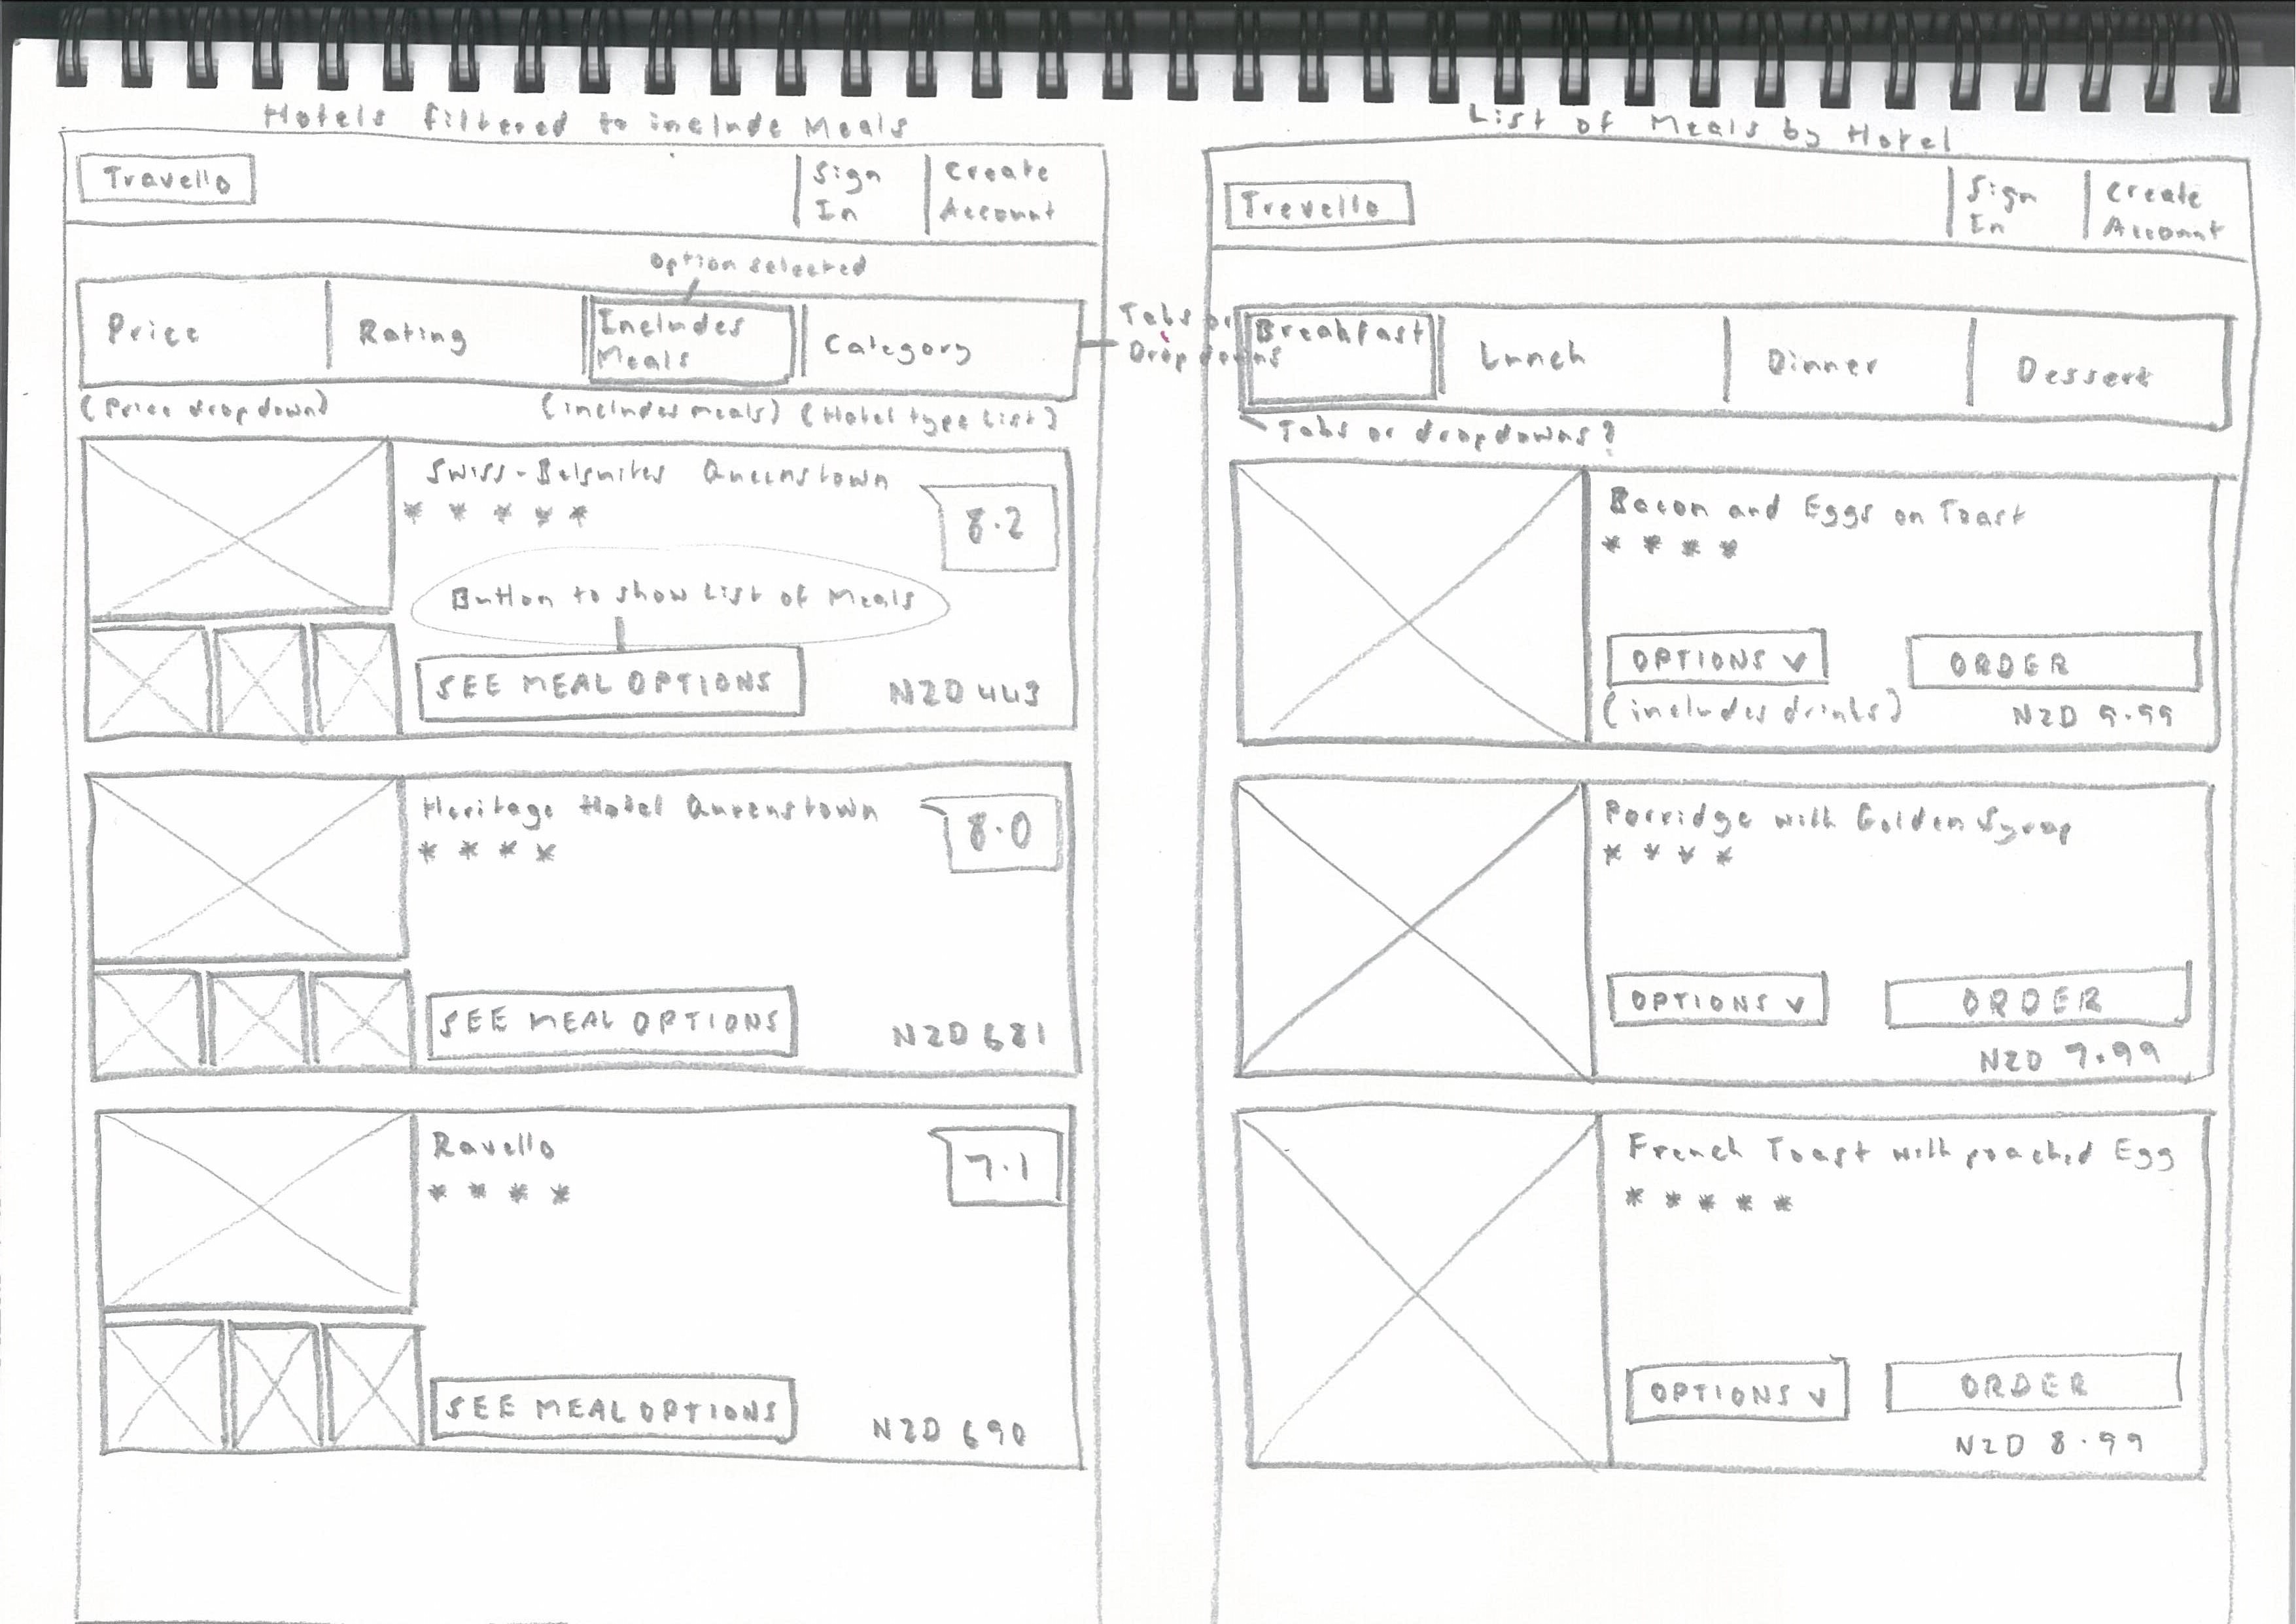 Hotels filtered to include Meals
Travello
Sign
In
Create
Account
option selected
Price
Rating
Includes
Meals
Category
Tabs or
Dropdowns
(Price dropdown)
(includes meals)
(Hotel type List)
Swiss-Belsuites Queenstown
* * * * *
8.2
Button to show List of Meals
SEE MEAL OPTIONS
NZD 443
Heritage Hotel Queenstown
* * * *
8.0
SEE MEAL OPTIONS
NZD 681
Ravello
* * * *
7.1
SEE MEAL OPTIONS
NZD 690
List of Meals by Hotel
Trevello
Sign
In
Create
Account
Breakfast
Lunch
Dinner
Dessert
Tabs or dropdowns?
Bacon and Eggs on Toast
* * * *
OPTIONS v
ORDER
(includes drinks)
NZD 9.99
Porridge with Golden Syrop
* * * *
OPTIONS v
ORDER
NZD 7.99
French Toast with poached Egg
* * * * *
OPTIONS v
ORDER
NZD 8.99